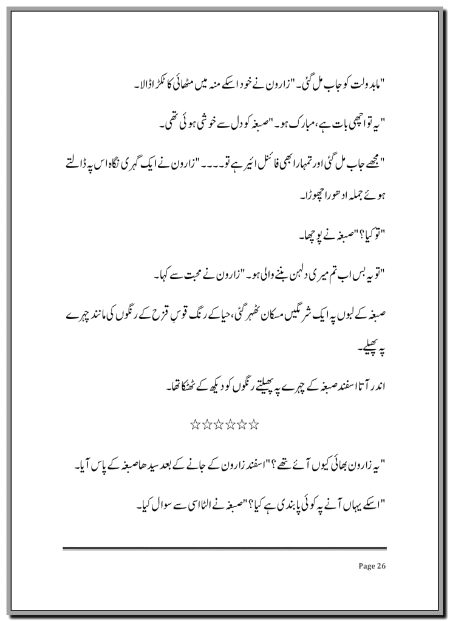 "مابدولت کو جاب مل گئی۔" زارون نے خود اسکے منہ میں مٹھائی کا ٹکڑا ڈالا۔
"یہ تو اچھی بات ہے، مبارک ہو۔" صبغہ کو دل سے خوشی ہوئی تھی۔
"مجھے جاب مل گئی اور تمہارا بھی فائنل ائیر ہے تو۔۔۔۔" زارون نے ایک گہری نگاہ اس پہ ڈالتے
ہوئے جملہ ادھورا چھوڑا۔
"تو کیا؟" صبغہ نے پوچھا۔
"تو یہ بس اب تم میری دلہن بننے والی ہو۔" زارون نے محبت سے کہا۔
صبغہ کے لبوں پہ ایک شرمگیں مسکان ٹھہر گئی، حیا کے رنگ قوسِ قزح کے رنگوں کی مانند چہرے
پہ پھیلے۔
اندر آتا اسفند صبغہ کے چہرے پہ پھیلتے رنگوں کو دیکھ کے ٹھٹکا تھا۔
☆☆☆☆☆☆
"یہ زارون بھائی کیوں آئے تھے؟" اسفند زارون کے جانے کے بعد سیدھا صبغہ کے پاس آیا۔
"اسکے یہاں آنے پہ کوئی پابندی ہے کیا؟" صبغہ نے الٹا اسی سے سوال کیا۔
Page 26